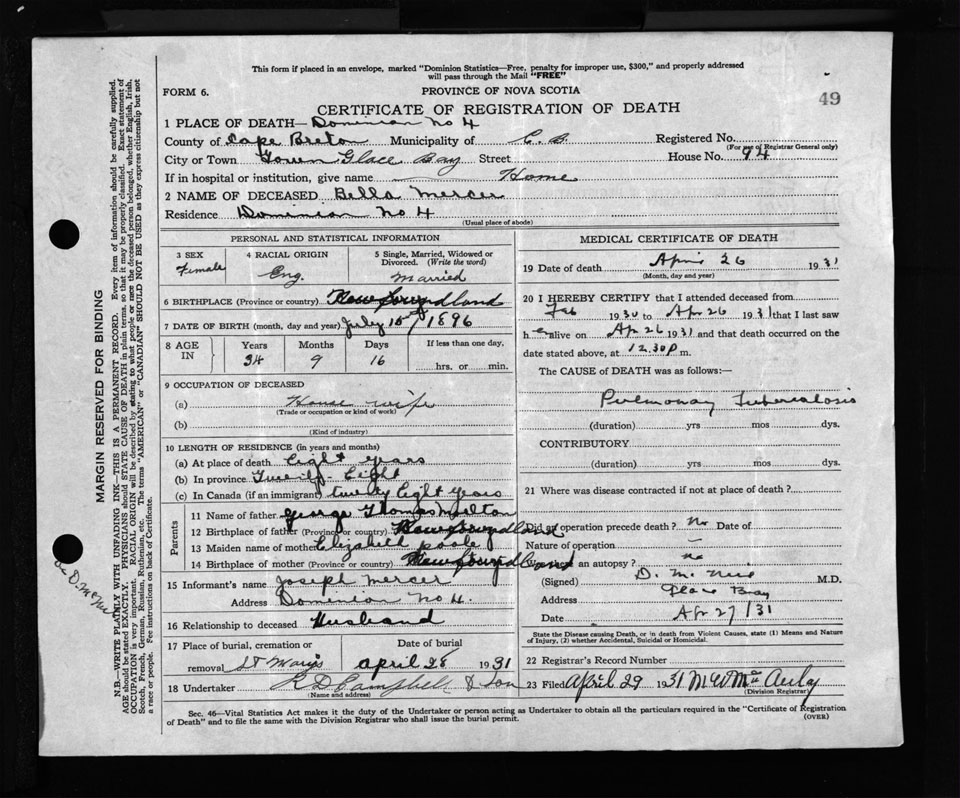 This form if placed in an envelope, marked "Dominion Statistics—Free, penalty for improper use, $300," and properly addressed
will pass through the Mail "FREE"
FORM 6.
PROVINCE OF NOVA SCOTIA
49
CERTIFICATE OF REGISTRATION OF DEATH
1 PLACE OF DEATH— Dominion No 4
County of Cape Breton Municipality of C. B. Registered No.
(For use of Registrar General only)
City or Town Town Glace Bay Street House No. 94
If in hospital or institution, give name Home
2 NAME OF DECEASED Bella Mercer
Residence Dominion No 4
(Usual place of abode)
PERSONAL AND STATISTICAL INFORMATION
3 SEX 4 RACIAL ORIGIN 5 Single, Married, Widowed or
Divorced. (Write the word)
Female Eng. Married
6 BIRTHPLACE (Province or country) Newfoundland
7 DATE OF BIRTH (month, day and year) July 10 1896
8 AGE IN Years Months Days If less than one day,
34 9 16 hrs. or min.
9 OCCUPATION OF DECEASED
(a) House wife
(Trade or occupation or kind of work)
(b)
(Kind of industry)
10 LENGTH OF RESIDENCE (in years and months)
(a) At place of death Eight years
(b) In province Twenty Eight
(c) In Canada (if an immigrant) twenty Eight years
Parents
11 Name of father George Thomas Milton
12 Birthplace of father (Province or country) Newfoundland
13 Maiden name of mother Elizabeth Poole
14 Birthplace of mother (Province or country) Newfoundland
15 Informant's name Joseph Mercer
Address Dominion No 4.
16 Relationship to deceased Husband
17 Place of burial, cremation or Date of burial
removal St Marys April 28 1931
18 Undertaker R D Campbell & Son
(Name and address)
MEDICAL CERTIFICATE OF DEATH
19 Date of death April 26 1931
(Month, day and year)
20 I HEREBY CERTIFY that I attended deceased from
Feb 1930 to Ap 26 1931 that I last saw
h er alive on Ap 26 1931 and that death occurred on the
date stated above, at 12.30P m.
The CAUSE of DEATH was as follows:—
Pulmonary Tuberculosis
(duration) yrs mos dys.
CONTRIBUTORY
(duration) yrs mos dys.
21 Where was disease contracted if not at place of death?
Did an operation precede death? No Date of
Nature of operation —
an autopsy? no
(Signed) D. M. M.D.
Address Glace Bay
Date Ap 27/31
State the Disease causing Death, or in death from Violent Causes, state (1) Means and Nature
of Injury, (2) whether Accidental, Suicidal or Homicidal.
22 Registrar's Record Number
23 Filed April 29 1931 M W MacAulay
(Division Registrar)
Sec. 46—Vital Statistics Act makes it the duty of the Undertaker or person acting as Undertaker to obtain all the particulars required in the "Certificate of Registration
of Death" and to file the same with the Division Registrar who shall issue the burial permit.
(OVER)
MARGIN RESERVED FOR BINDING
N.B.—WRITE PLAINLY WITH UNFADING INK—THIS IS A PERMANENT RECORD. Every item of information should be carefully supplied.
AGE should be stated EXACTLY. PHYSICIANS should STATE CAUSE OF DEATH in plain terms, so that it may be properly classified. Exact statement of
OCCUPATION is very important. RACIAL ORIGIN will be described by stating to what people or race the deceased person belonged, whether English, Irish,
Scotch, French, German, Russian, Ruthenian, etc. The terms "AMERICAN" or "CANADIAN" SHOULD NOT BE USED as they express citizenship but not
a race or people. See instructions on back of Certificate.